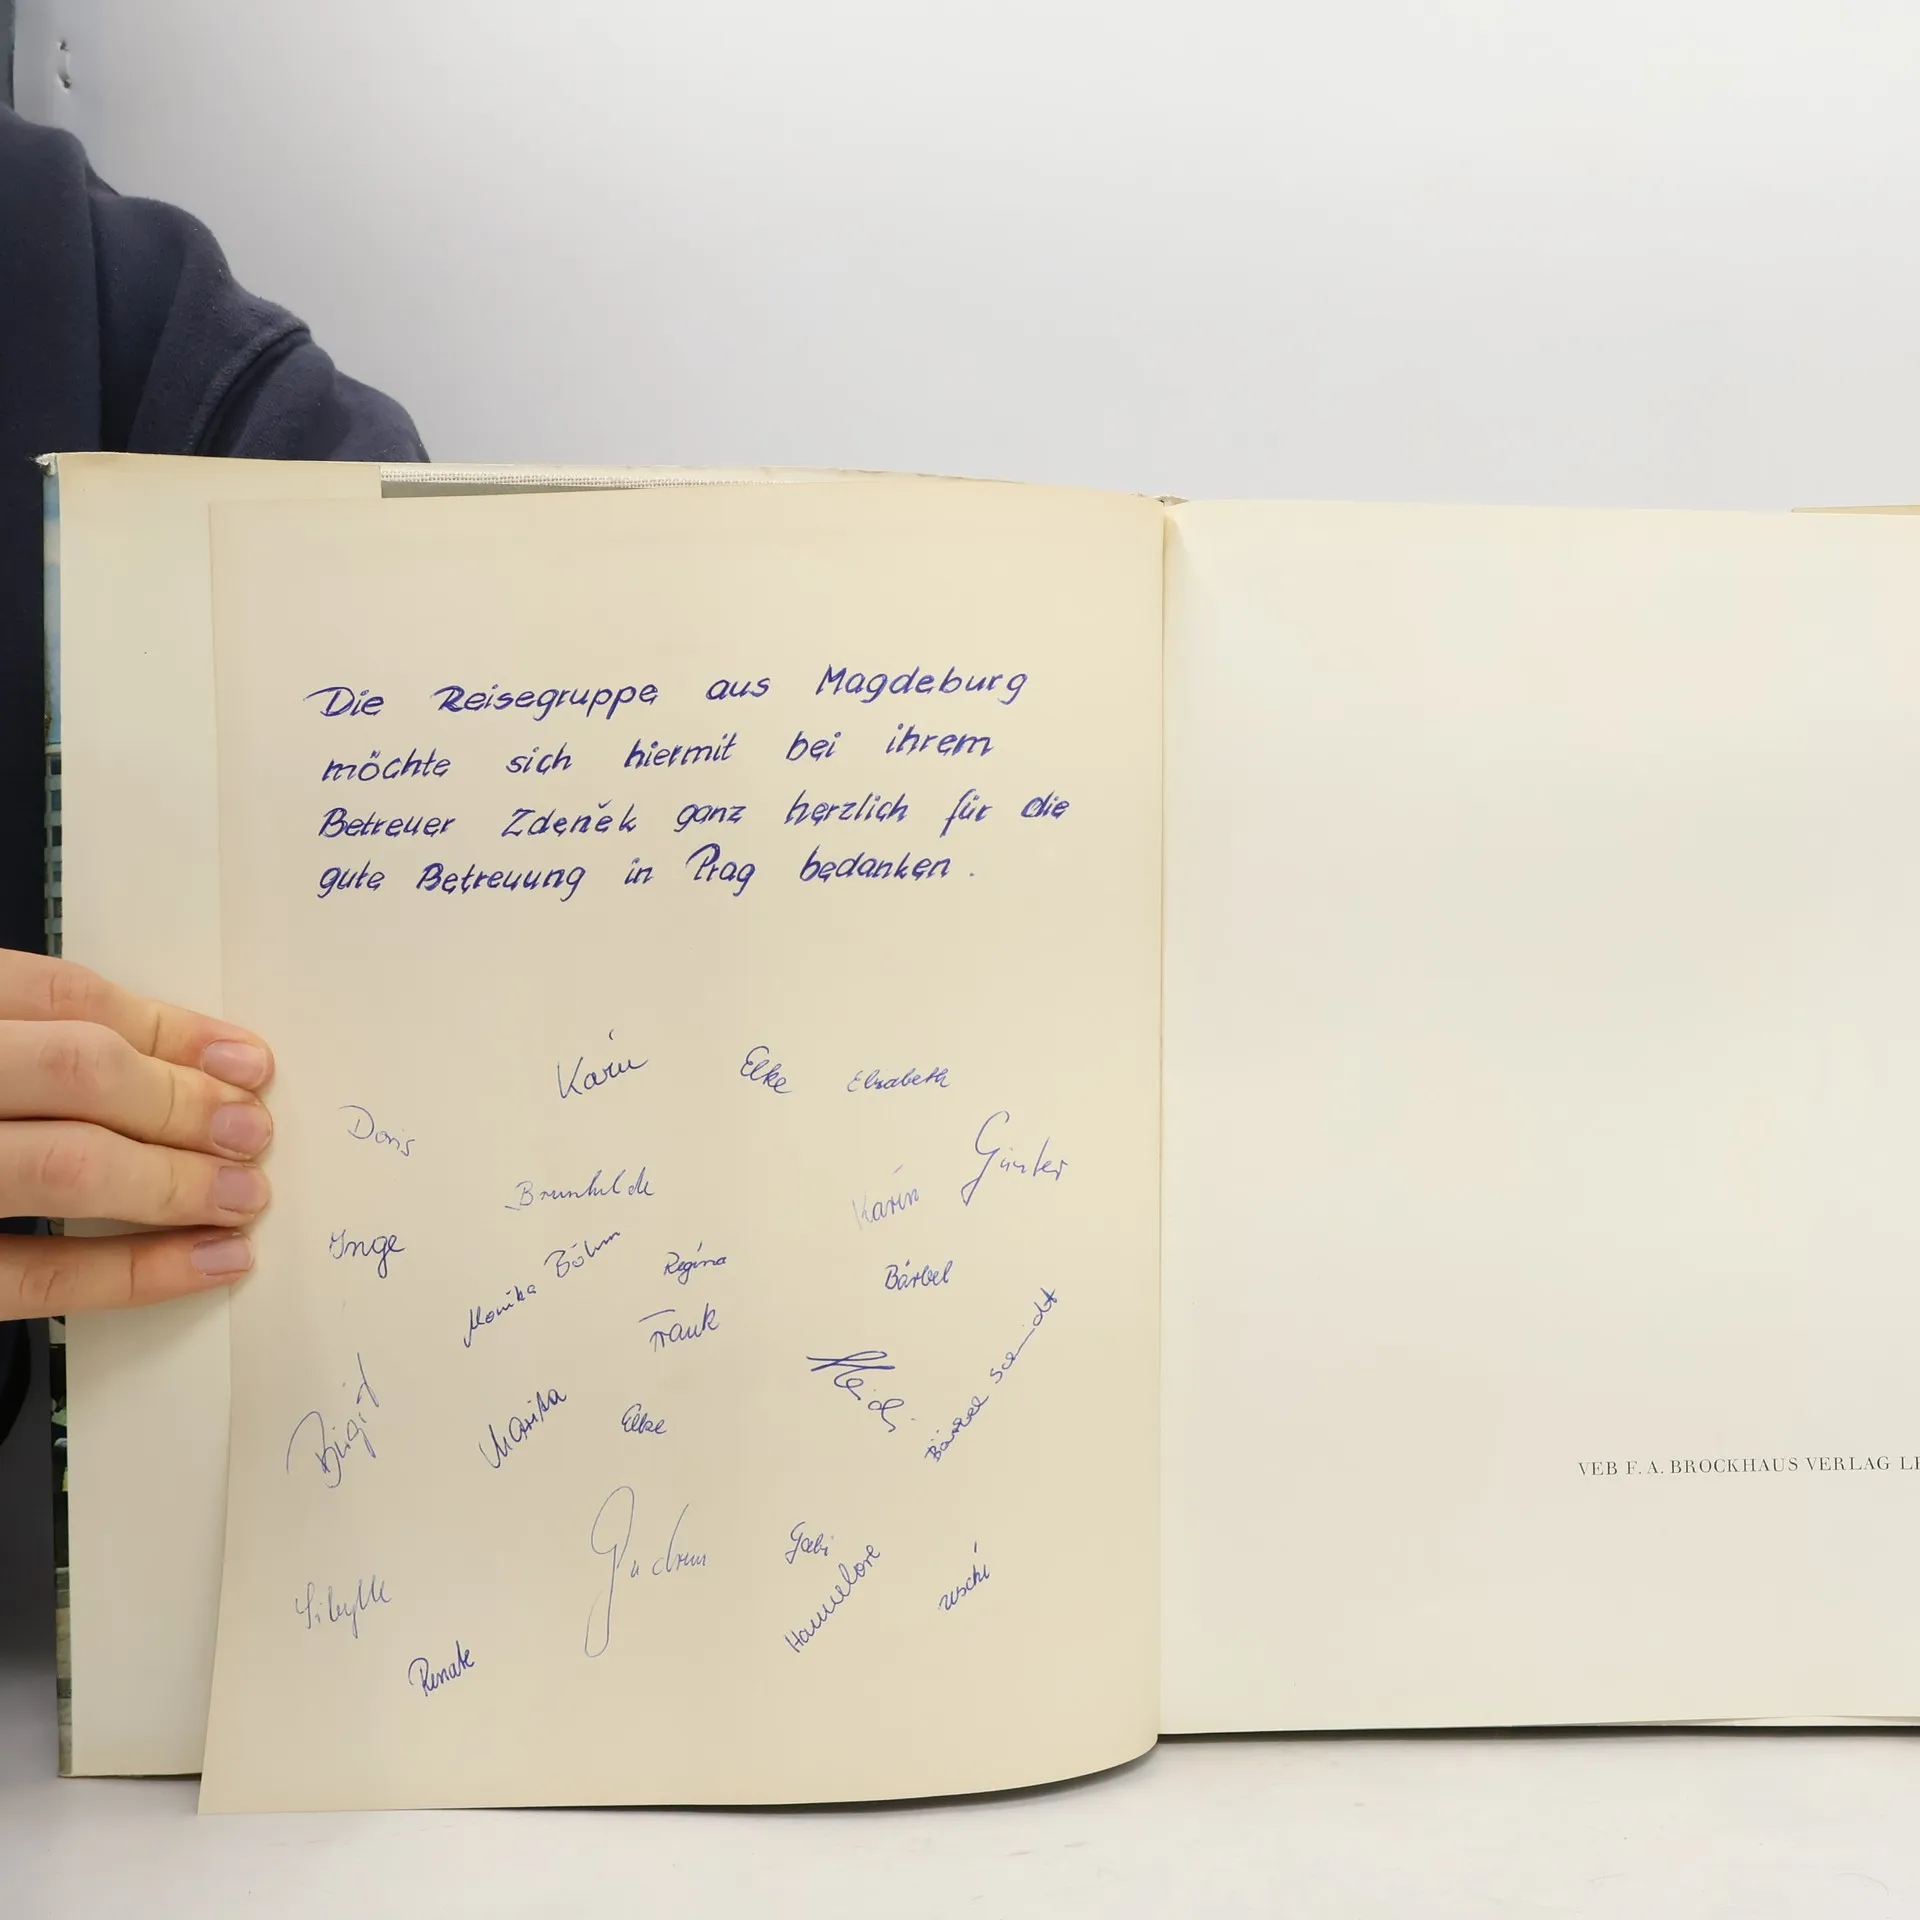 Die Reisegruppe aus Magdeburg
möchte sich hiermit bei ihrem
Betreuer Zdeněk ganz herzlich für die
gute Betreuung in Prag bedanken.
Karin
Elke
Elisabeth
Doris
Günter
Brunhilde
Karin
Inge
Monika Böhm
Regina
Bärbel
Frank
Heidi
Bärbel Schmidt
Birgit
Marika
Elke
Gudrun
Gabi
Hannelore
Uschi
Sibylle
Renate
VEB F. A. BROCKHAUS VERLAG LE